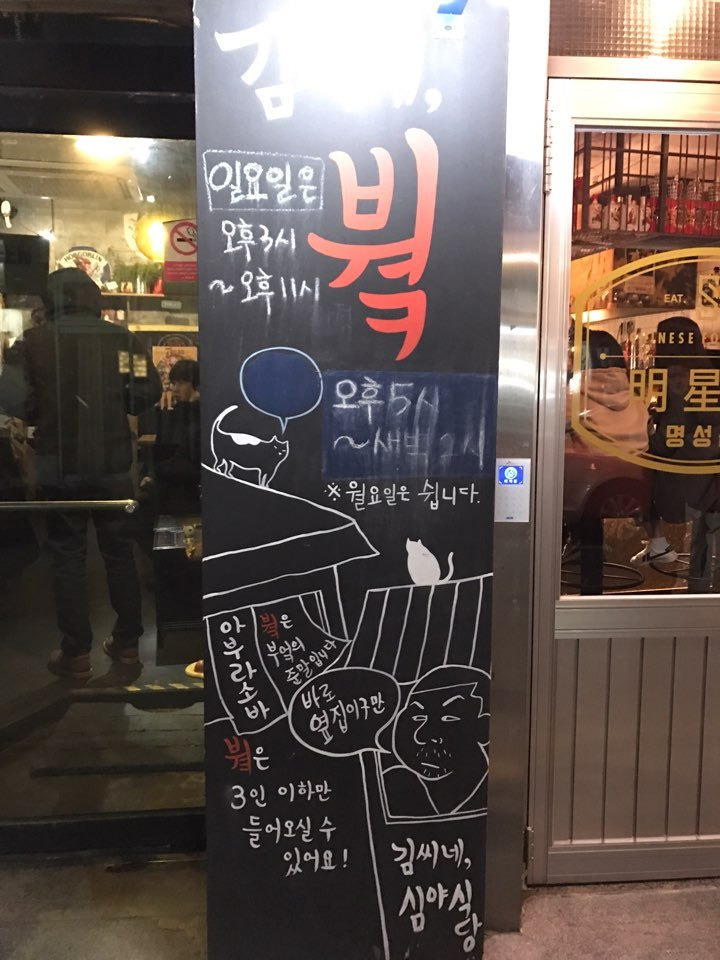 김씨네,
븤
일요일은
오후3시
~오후11시
오후 5시
~새벽 2시
※ 월요일은 쉽니다.
아부라소바
븤은
부엌의
줄말입니다
바로
옆집이구만
븤은
3인 이하만
들어오실 수
있어요!
김씨네,
심야식당
HOBGOBLIN
EAT.
明星
명성